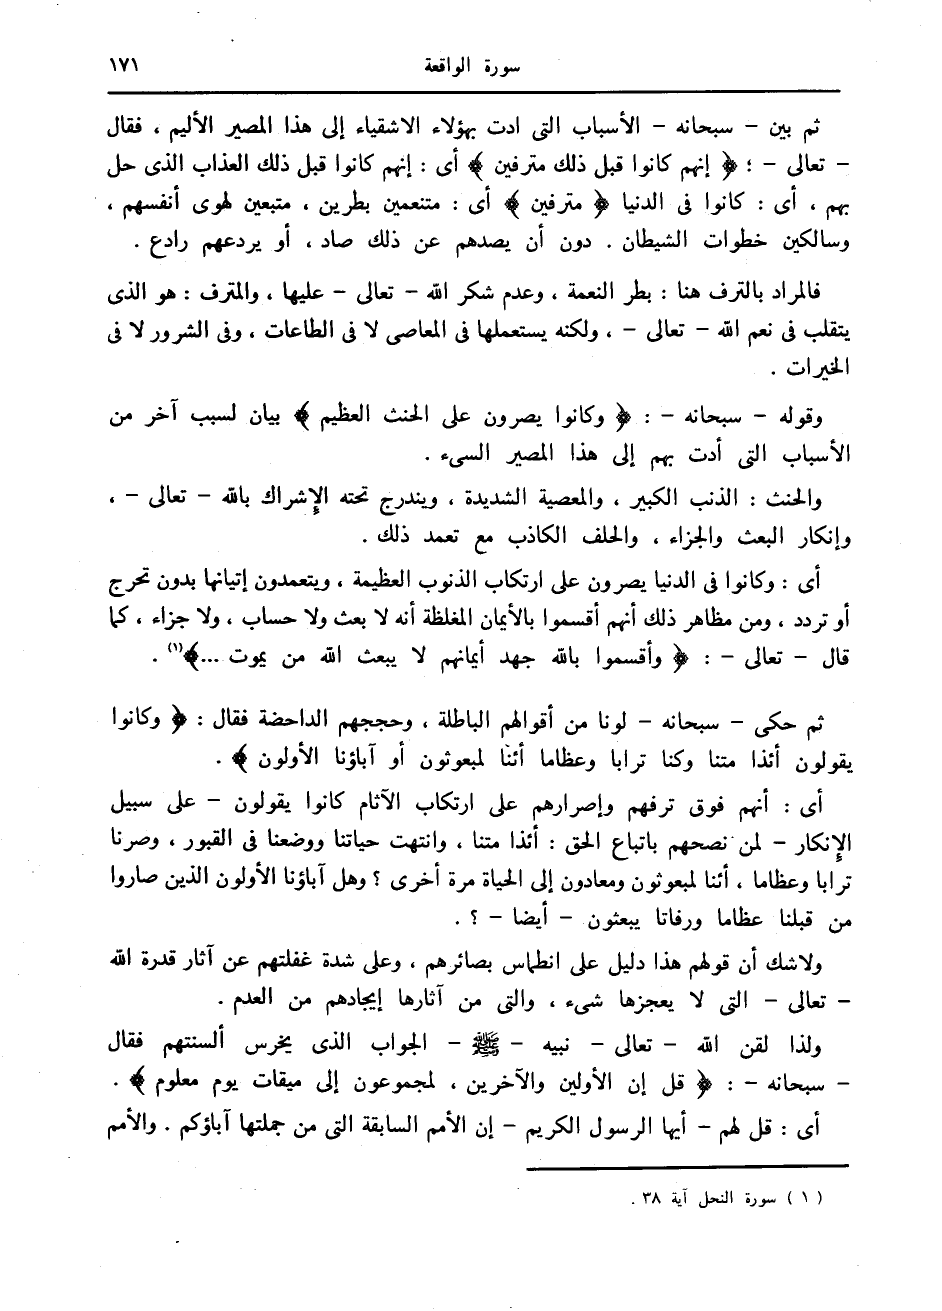 سورة الواقعة ١٧١
ثم بين – سبحانه – الأسباب التى ادت بهؤلاء الاشقياء إلى هذا المصير الأليم ، فقال
– تعالى – ؛ ﴿ إنهم كانوا قبل ذلك مترفين ﴾ أى : إنهم كانوا قبل ذلك العذاب الذى حل
بهم ، أى : كانوا فى الدنيا ﴿ مترفين ﴾ أى : متنعمين بطرين ، متبعين لهوى أنفسهم ،
وسالكين خطوات الشيطان . دون أن يصدهم عن ذلك صاد ، أو يردعهم رادع .
فالمراد بالترف هنا : بطر النعمة ، وعدم شكر الله – تعالى – عليها ، والمترف : هو الذى
يتقلب فى نعم الله – تعالى – ، ولكنه يستعملها فى المعاصى لا فى الطاعات ، وفى الشرور لا فى
الخيرات .
وقوله – سبحانه – : ﴿ وكانوا يصرون على الحنث العظيم ﴾ بيان لسبب آخر من
الأسباب التى أدت بهم إلى هذا المصير السيىء .
والحنث : الذنب الكبير ، والمعصية الشديدة ، ويندرج تحته الإشراك بالله – تعالى – ،
وإنكار البعث والجزاء ، والحلف الكاذب مع تعمد ذلك .
أى : وكانوا فى الدنيا يصرون على ارتكاب الذنوب العظيمة ، ويتعمدون إتيانها بدون تحرج
أو تردد ، ومن مظاهر ذلك أنهم أقسموا بالأيمان المغلظة أنه لا بعث ولا حساب ، ولا جزاء ، كما
قال – تعالى – : ﴿ وأقسموا بالله جهد أيمانهم لا يبعث الله من يموت ...﴾(١) .
ثم حكى – سبحانه – لونا من أقوالهم الباطلة ، وحججهم الداحضة فقال : ﴿ وكانوا
يقولون أئذا متنا وكنا ترابا وعظاما أئنا لمبعوثون أو آباؤنا الأولون ﴾ .
أى : أنهم فوق ترفهم وإصرارهم على ارتكاب الآثام كانوا يقولون – على سبيل
الإنكار – لمن نصحهم باتباع الحق : أئذا متنا ، وانتهت حياتنا ووضعنا فى القبور ، وصرنا
ترابا وعظاما ، أئنا لمبعوثون ومعادون إلى الحياة مرة أخرى ؟ وهل آباؤنا الأولون الذين صاروا
من قبلنا عظاما ورفاتا يبعثون – أيضا – ؟ .
ولاشك أن قولهم هذا دليل على انطماس بصائرهم ، وعلى شدة غفلتهم عن آثار قدرة الله
– تعالى – التى لا يعجزها شىء ، والتى من آثارها إيجادهم من العدم .
ولذا لقن الله – تعالى – نبيه – ﷺ – الجواب الذى يخرس ألسنتهم فقال
– سبحانه – : ﴿ قل إن الأولين والآخرين ، لمجموعون إلى ميقات يوم معلوم ﴾ .
أى : قل لهم – أيها الرسول الكريم – إن الأمم السابقة التى من جملتها آباؤكم . والأمم
( ١ ) سورة النحل آية ٣٨ .